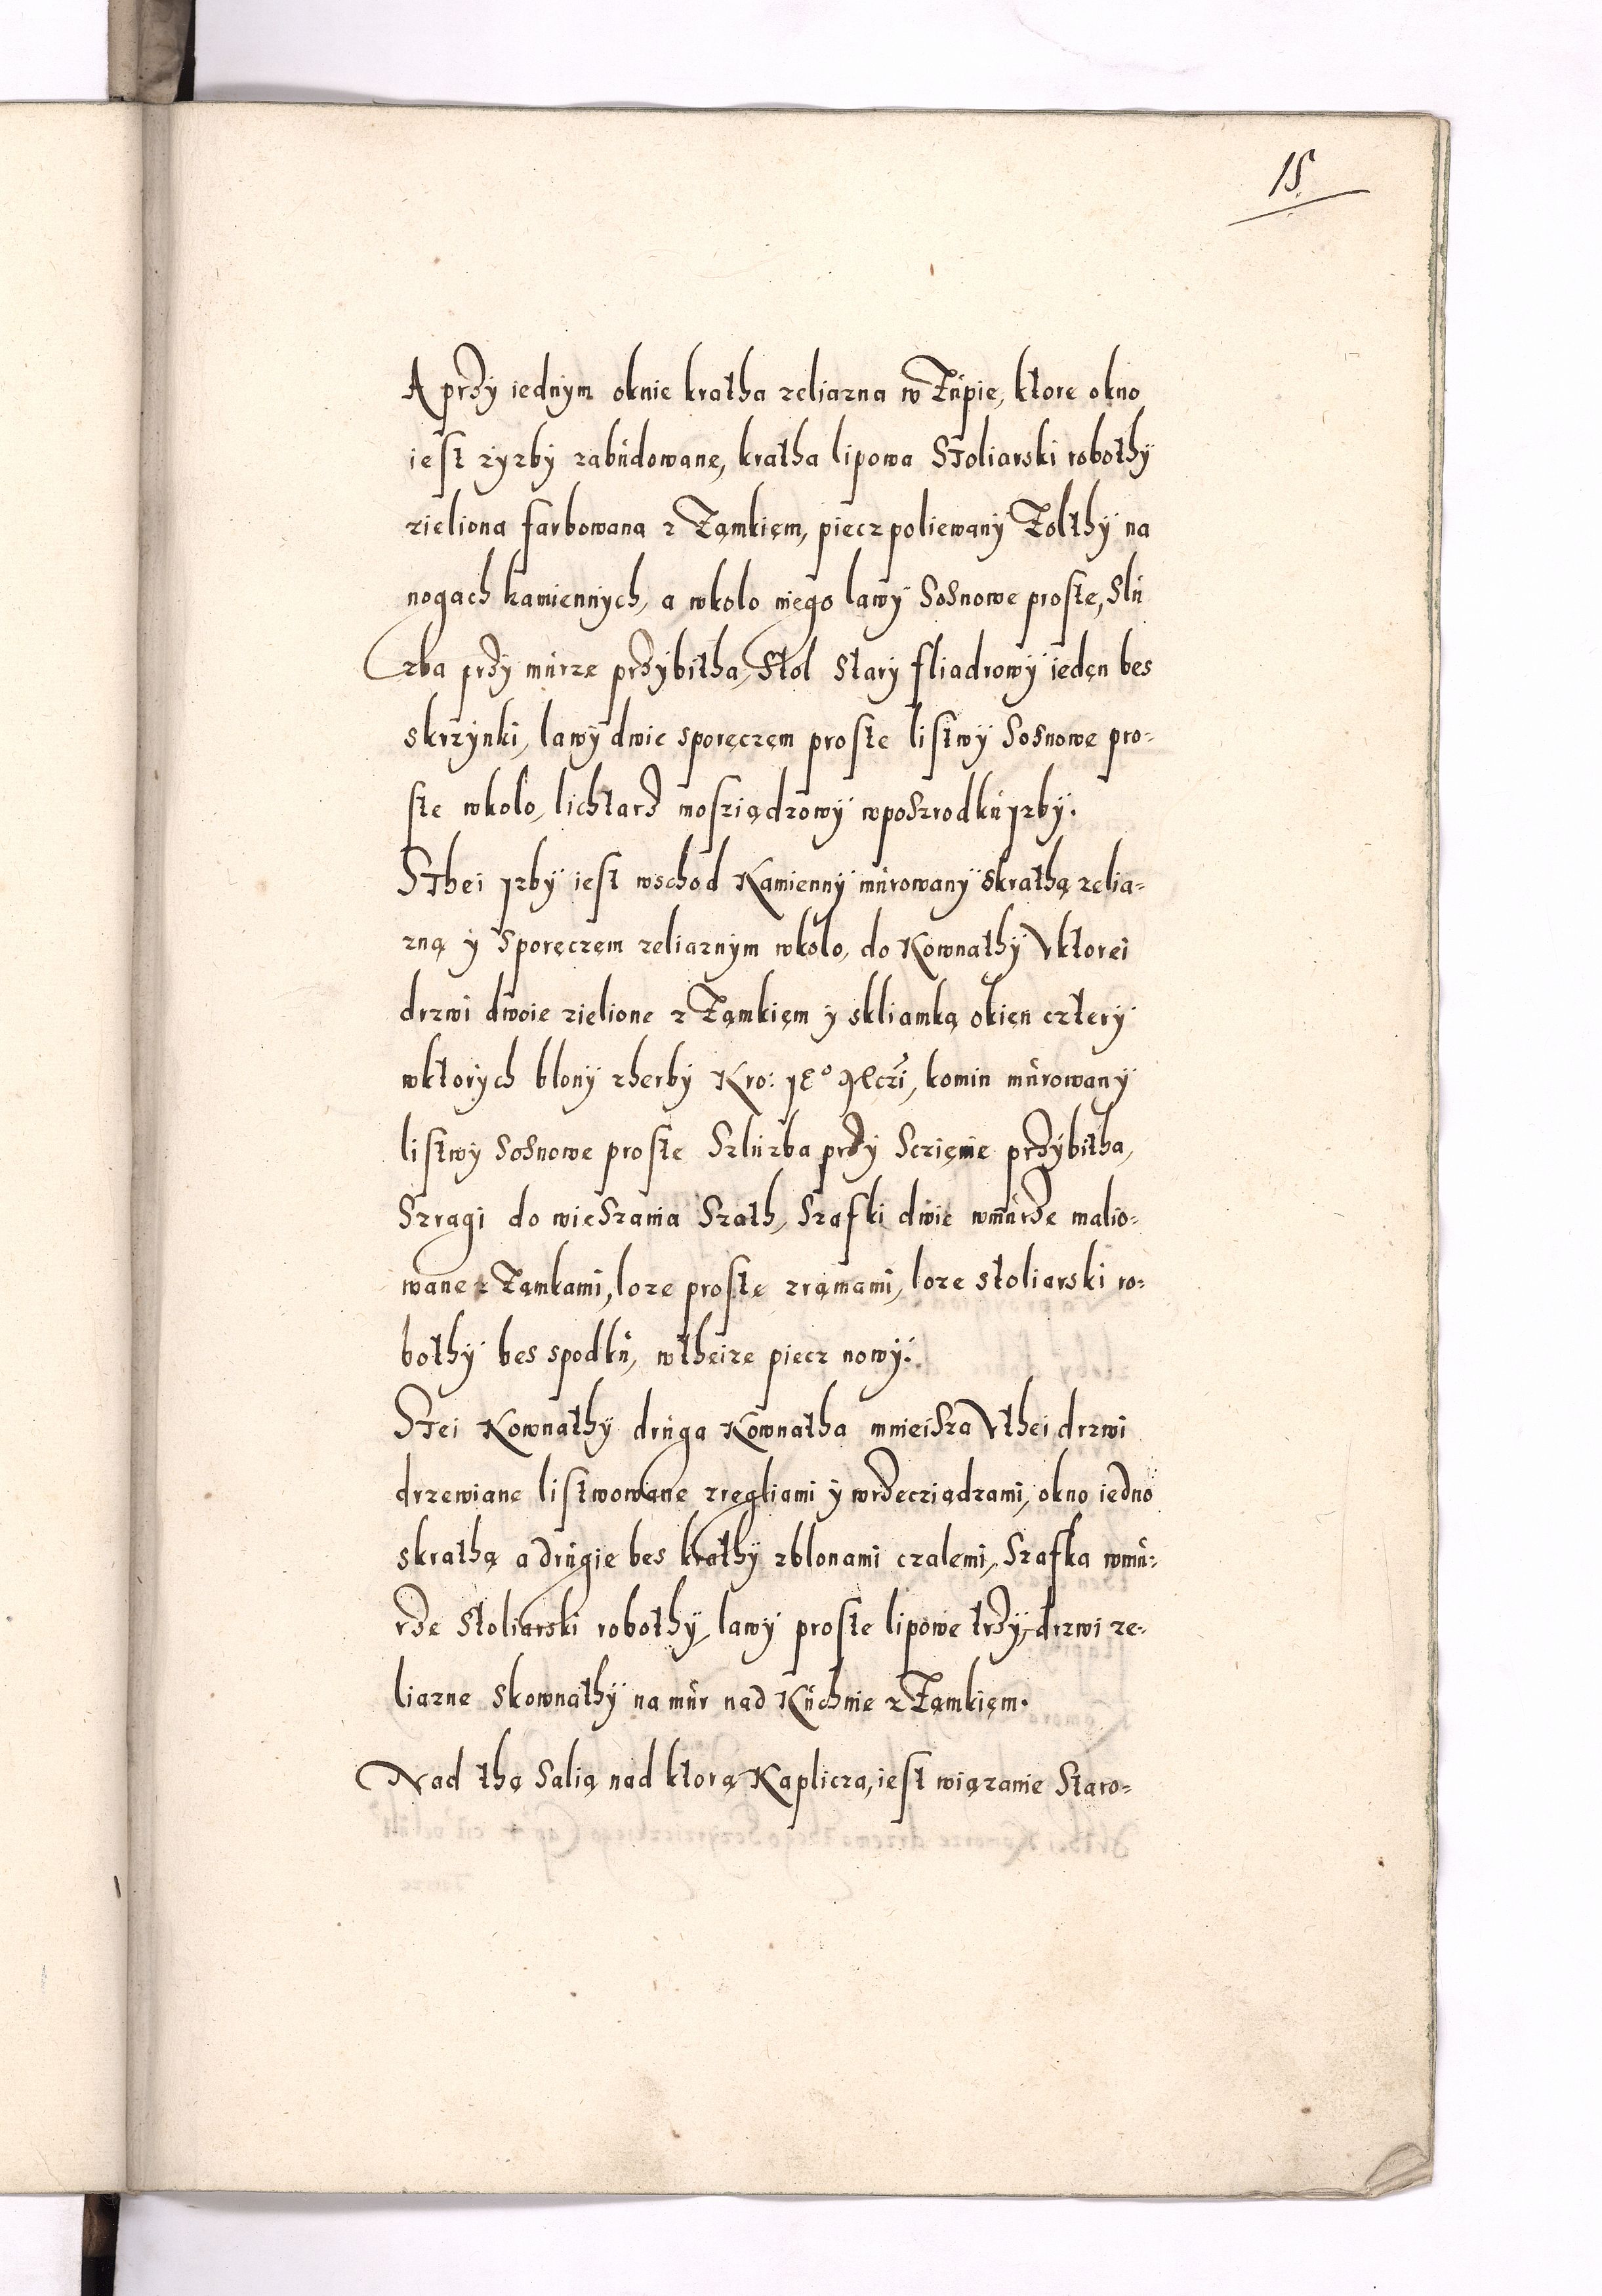 15.
A przÿ iednÿm oknie kratha zeliazna w Zupie, ktore okno
iest zyzbÿ zabudowane, kratha lipowa Stoliarski robothÿ
zieliona farbowana z Zamkięm, piecz poliewanÿ Zolthÿ na
nogach kamiennÿch, a wkolo niego lawÿ Sosnowe proste, Slu
zba przÿ murze przÿbitha, Stol Starÿ fliadrowÿ iedęn bes
skrzÿnki, lawÿ dwie sporęczęm proste listwÿ Sosnowe pro-
ste wkolo, lichtarz mosziądzowÿ wposzrodku yzbÿ.
Sthei yzbÿ iest wschod Kamiennÿ murowanÿ skrathą zelia-
zną ÿ Sporęczęm zeliaznÿm wkolo, do Kownathÿ Vktorei
drzwi dwoie zielione z Zamkięm ÿ skliamką okięn czterÿ
wktorÿch blonÿ zherbÿ Kro: JE° Mczi, komin murowanÿ
listwÿ Sosnowe proste Szluzba przÿ Sczięnie przÿbitha,
Szragi do wieszania Szath, Szafki dwie wmurze malio-
wane z Zamkami, loze proste zramami, loze stoliarski ro-
bothÿ bes spodku, wtheize piecz nowÿ.
Stei Kownathÿ druga Kownatha mnieisza Vthei drzwi
drzewiane listwowane zregliami ÿ wrzecziądzami, okno iedno
skrathą a drugie bes krathÿ zblonami czalemi, Szafka wmu-
rze Stoliarski robothÿ, lawÿ proste lipowe trzÿ, drzwi ze-
liazne Skownathÿ na mur nad Kuchnie z Zamkięm.
Nad thą Salią nad ktorą Kaplicza, iest wiązanie Staro-